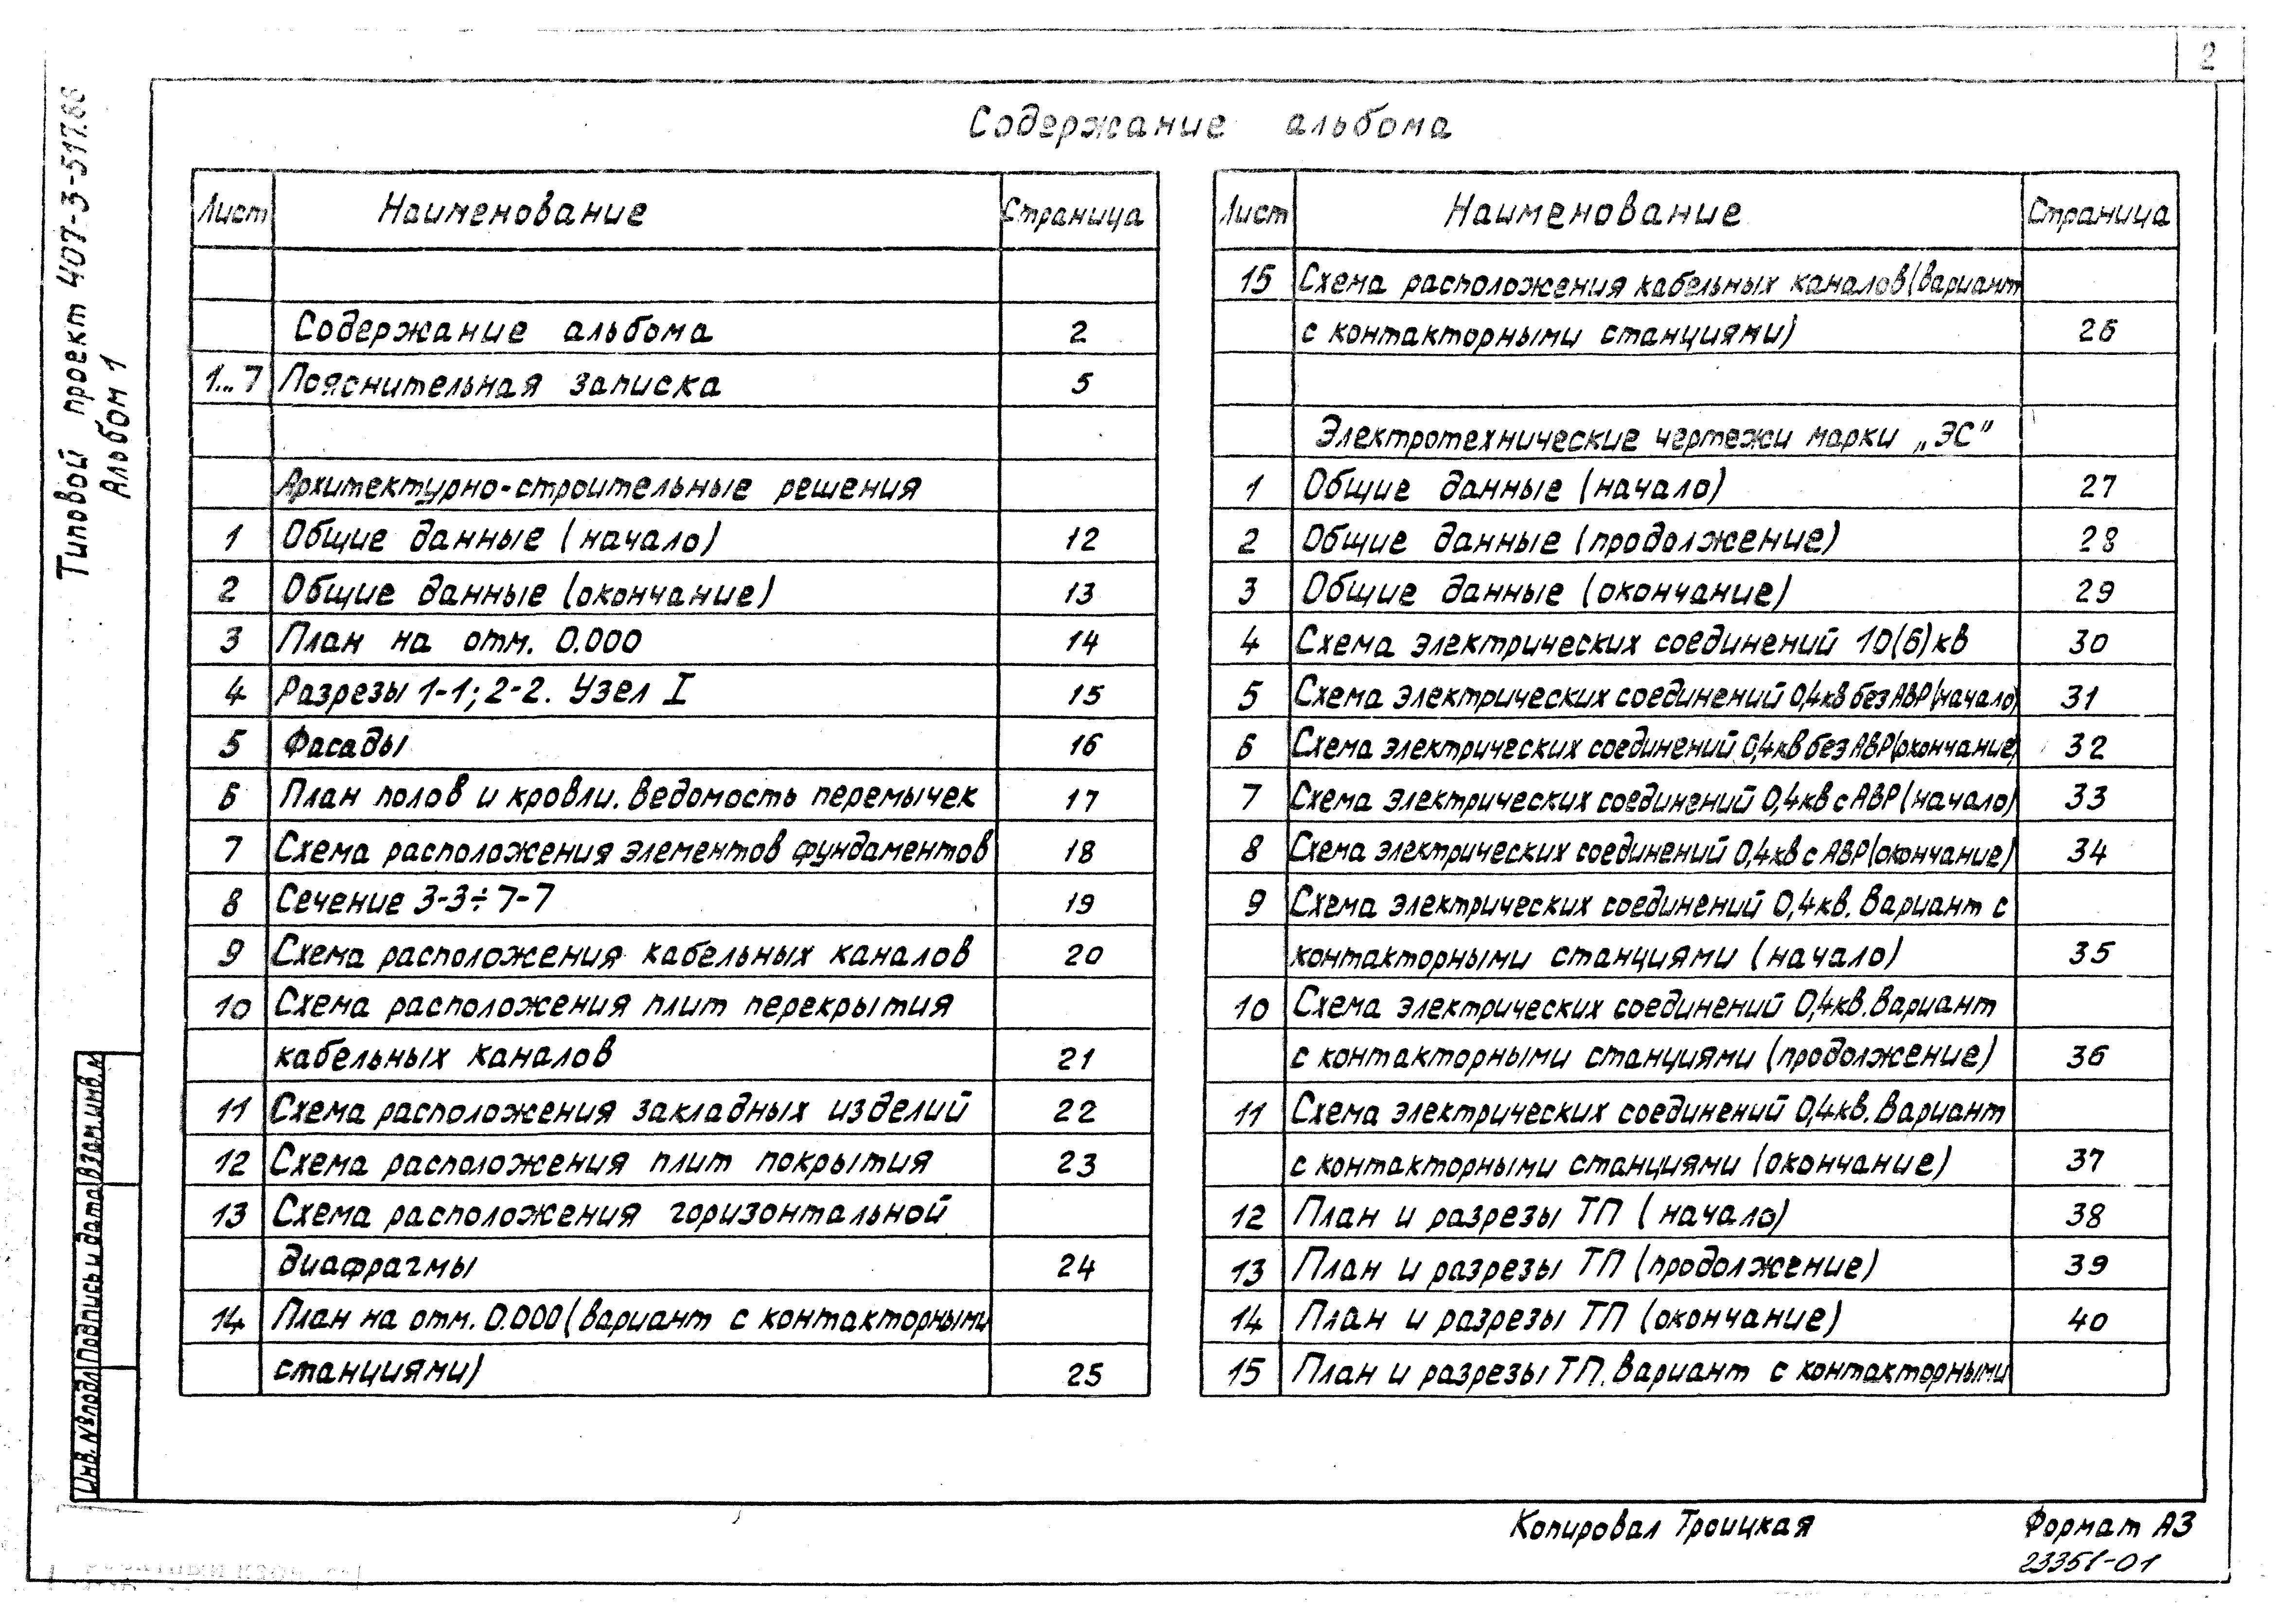 2
Типовой проект 407-3-517.88
Альбом 1
Содержание альбома
Лист Наименование Страница
Содержание альбома 2
1...7 Пояснительная записка 5
Архитектурно-строительные решения
1 Общие данные (начало) 12
2 Общие данные (окончание) 13
3 План на отм. 0.000 14
4 Разрезы 1-1; 2-2. Узел I 15
5 Фасады 16
6 План полов и кровли. Ведомость перемычек 17
7 Схема расположения элементов фундаментов 18
8 Сечение 3-3÷7-7 19
9 Схема расположения кабельных каналов 20
10 Схема расположения плит перекрытия
кабельных каналов 21
11 Схема расположения закладных изделий 22
12 Схема расположения плит покрытия 23
13 Схема расположения горизонтальной
диафрагмы 24
14 План на отм. 0.000 (вариант с контакторными
станциями) 25
Лист Наименование Страница
15 Схема расположения кабельных каналов (вариант
с контакторными станциями) 26
Электротехнические чертежи марки „ЭС"
1 Общие данные (начало) 27
2 Общие данные (продолжение) 28
3 Общие данные (окончание) 29
4 Схема электрических соединений 10(6)кв 30
5 Схема электрических соединений 0,4кв без АВР (начало) 31
6 Схема электрических соединений 0,4кв без АВР (окончание) 32
7 Схема электрических соединений 0,4кв с АВР (начало) 33
8 Схема электрических соединений 0,4кв с АВР (окончание) 34
9 Схема электрических соединений 0,4кв. Вариант с
контакторными станциями (начало) 35
10 Схема электрических соединений 0,4кв. Вариант
с контакторными станциями (продолжение) 36
11 Схема электрических соединений 0,4кв. Вариант
с контакторными станциями (окончание) 37
12 План и разрезы ТП (начало) 38
13 План и разрезы ТП (продолжение) 39
14 План и разрезы ТП (окончание) 40
15 План и разрезы ТП. Вариант с контакторными
Инв. № подл Подпись и дата Взам. инв. №
Копировал Троицкая Формат А3
23351-01